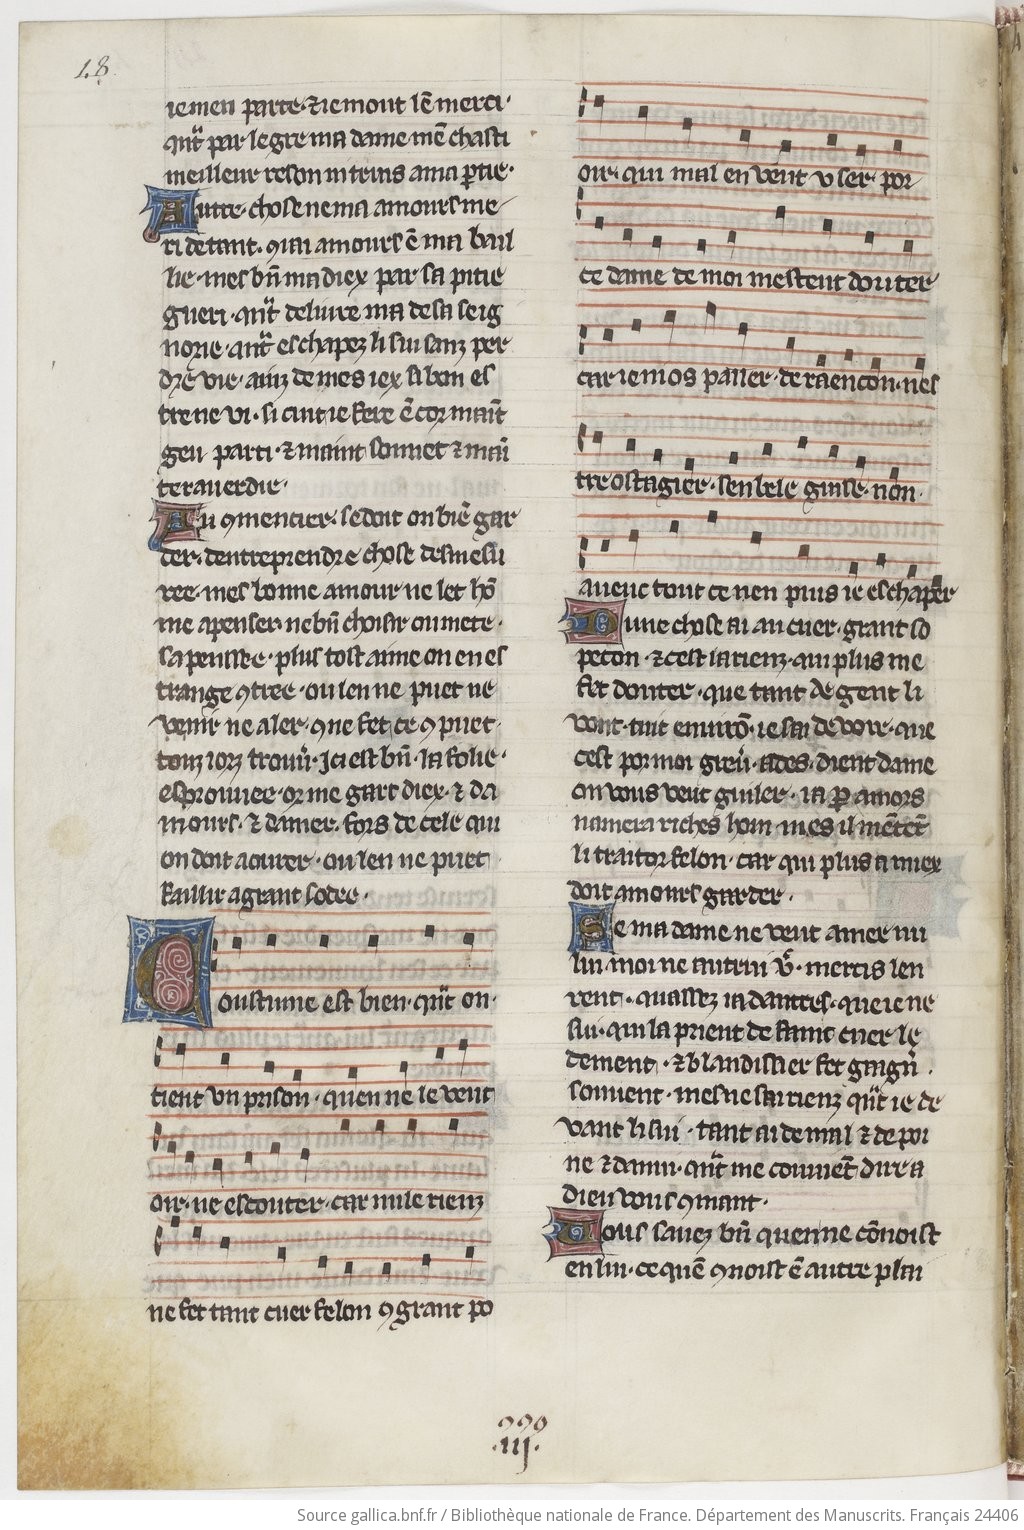 18
ie men parte · ⁊ ie mout lē merci ·
qnt̄ par le gre ma dame mē chasti
meilleur reson ni truis a ma ꝑtie ·
Autre chose ne ma amours me
ri de tant · q̃i ai amours ē ma bail
lie · mes bn̄ ma diex par sa pitie
gueri · qnt̄ deliure ma de sa seig
norie · qnt̄ eschapez li sui sanz per
dre vie · ainz de mes iex si bon es
tre ne vi · si cuit ie fere ē cor maint
geu parti · ⁊ maint sonnet ⁊ mai
te rauerdie ·
Au ꝯmencier · se doit on biē gar
der · dentreprendre chose desmesu
ree · mes bonne amour ne let hō
me apenser ne bn̄ choisir ou mete ·
sa pensee · plus tost aime on en es
trange ꝯtree · ou len ne puet ne
venir ne aler · que fet ce ꝯ puet ·
touz iorz trouu̾ · Ici est bn̄ · la folie ·
esprouuee · or me gart diex · ⁊ da
mours · ⁊ damer · fors de cele qui
on doit aourer · ou len ne puet
faillir a grant sodee ·
Coustume est bien · qnt̄ on ·
tient vn prison · quen ne le veut
oir · ne escouter · car nule rienz
ne fet tant cuer felon ꝯ grant po
oir · qui mal en veut vser · por
ce dame de moi mesteut douter
car ie nos paller · de raencon · nes
tre ostagier · sen bele guise · non ·
aueuc tout ce nen puis ie eschaper
De une chose ai au cuer · grant so
pecon · ⁊ cest la rienz · qui plus me
fet douter · que tant de gent li
vont · tuit enuirō · ie sai de voir · que
cest por moi greu̾ · ades · dient dame
on vous veut guiler · ia ꝑ amors
namera riches hom · mes il mētēt
li traitor felon · car qui plus a miex
doit amours garder ·
Se ma dame ne veut amer nu
lui · moi ne autrui v̾ · mercis len
rent · quassez ia dautres · que ie ne
sui · qui la prient de faint cuer le
dement · ⁊ blandissier fet gaign̾ ·
souuent · mes ne sai rienz qnt̄ ie de
uant li sui · tant ai de mal ⁊ de poi
ne ⁊ danui · qnt̄ me couuiēt dire a
dieu vous ꝯmant ·
Vous sauez bn̄ quen ne cōnoist
en lui · ce quē ꝯnoist ē autre plai
· iij ·
Source gallica.bnf.fr / Bibliothèque nationale de France. Département des Manuscrits. Français 24406